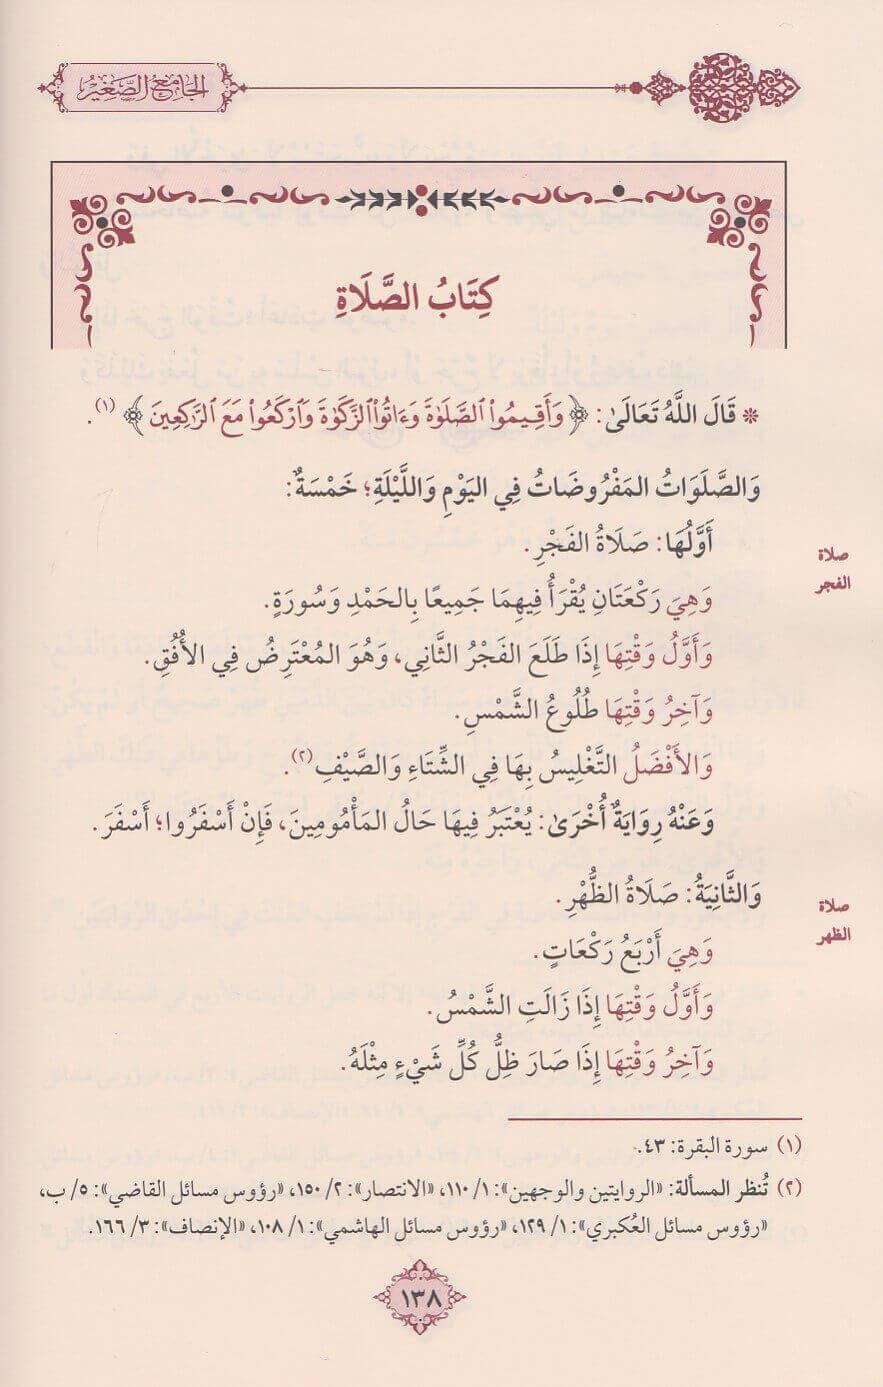 الجامع الصغير
كِتَابُ الصَّلَاةِ
* قَالَ اللَّهُ تَعَالَىٰ: ﴿وَأَقِيمُواْ ٱلصَّلَوٰةَ وَءَاتُواْ ٱلزَّكَوٰةَ وَٱرْكَعُواْ مَعَ ٱلرَّٰكِعِينَ﴾ (١).
وَالصَّلَوَاتُ المَفْرُوضَاتُ فِي اليَوْمِ وَاللَّيْلَةِ؛ خَمْسَةٌ:
أَوَّلُهَا: صَلَاةُ الفَجْرِ.
صلاة
الفجر
وَهِيَ رَكْعَتَانِ يُقْرَأُ فِيهِمَا جَمِيعًا بِالحَمْدِ وَسُورَةٍ.
وَأَوَّلُ وَقْتِهَا إِذَا طَلَعَ الفَجْرُ الثَّانِي، وَهُوَ المُعْتَرِضُ فِي الأُفُقِ.
وَآخِرُ وَقْتِهَا طُلُوعُ الشَّمْسِ.
وَالأَفْضَلُ التَّغْلِيسُ بِهَا فِي الشِّتَاءِ وَالصَّيْفِ (٢).
وَعَنْهُ رِوَايَةٌ أُخْرَىٰ: يُعْتَبَرُ فِيهَا حَالُ المَأْمُومِينَ، فَإِنْ أَسْفَرُوا؛ أَسْفَرَ.
وَالثَّانِيَةُ: صَلَاةُ الظُّهْرِ.
صلاة
الظهر
وَهِيَ أَرْبَعُ رَكْعَاتٍ.
وَأَوَّلُ وَقْتِهَا إِذَا زَالَتِ الشَّمْسُ.
وَآخِرُ وَقْتِهَا إِذَا صَارَ ظِلُّ كُلِّ شَيْءٍ مِثْلَهُ.
(١) سورة البقرة: ٤٣.
(٢) تُنظر المسألة: «الروايتين والوجهين»: ١/ ١١٠، «الانتصار»: ٢/ ١٥٠، «رؤوس مسائل القاضي»: ٥/ ب،
«رؤوس مسائل العُكبري»: ١/ ١٢٩، «رؤوس مسائل الهاشمي»: ١/ ١٠٨، «الإنصاف»: ٣/ ١٦٦.
١٣٨